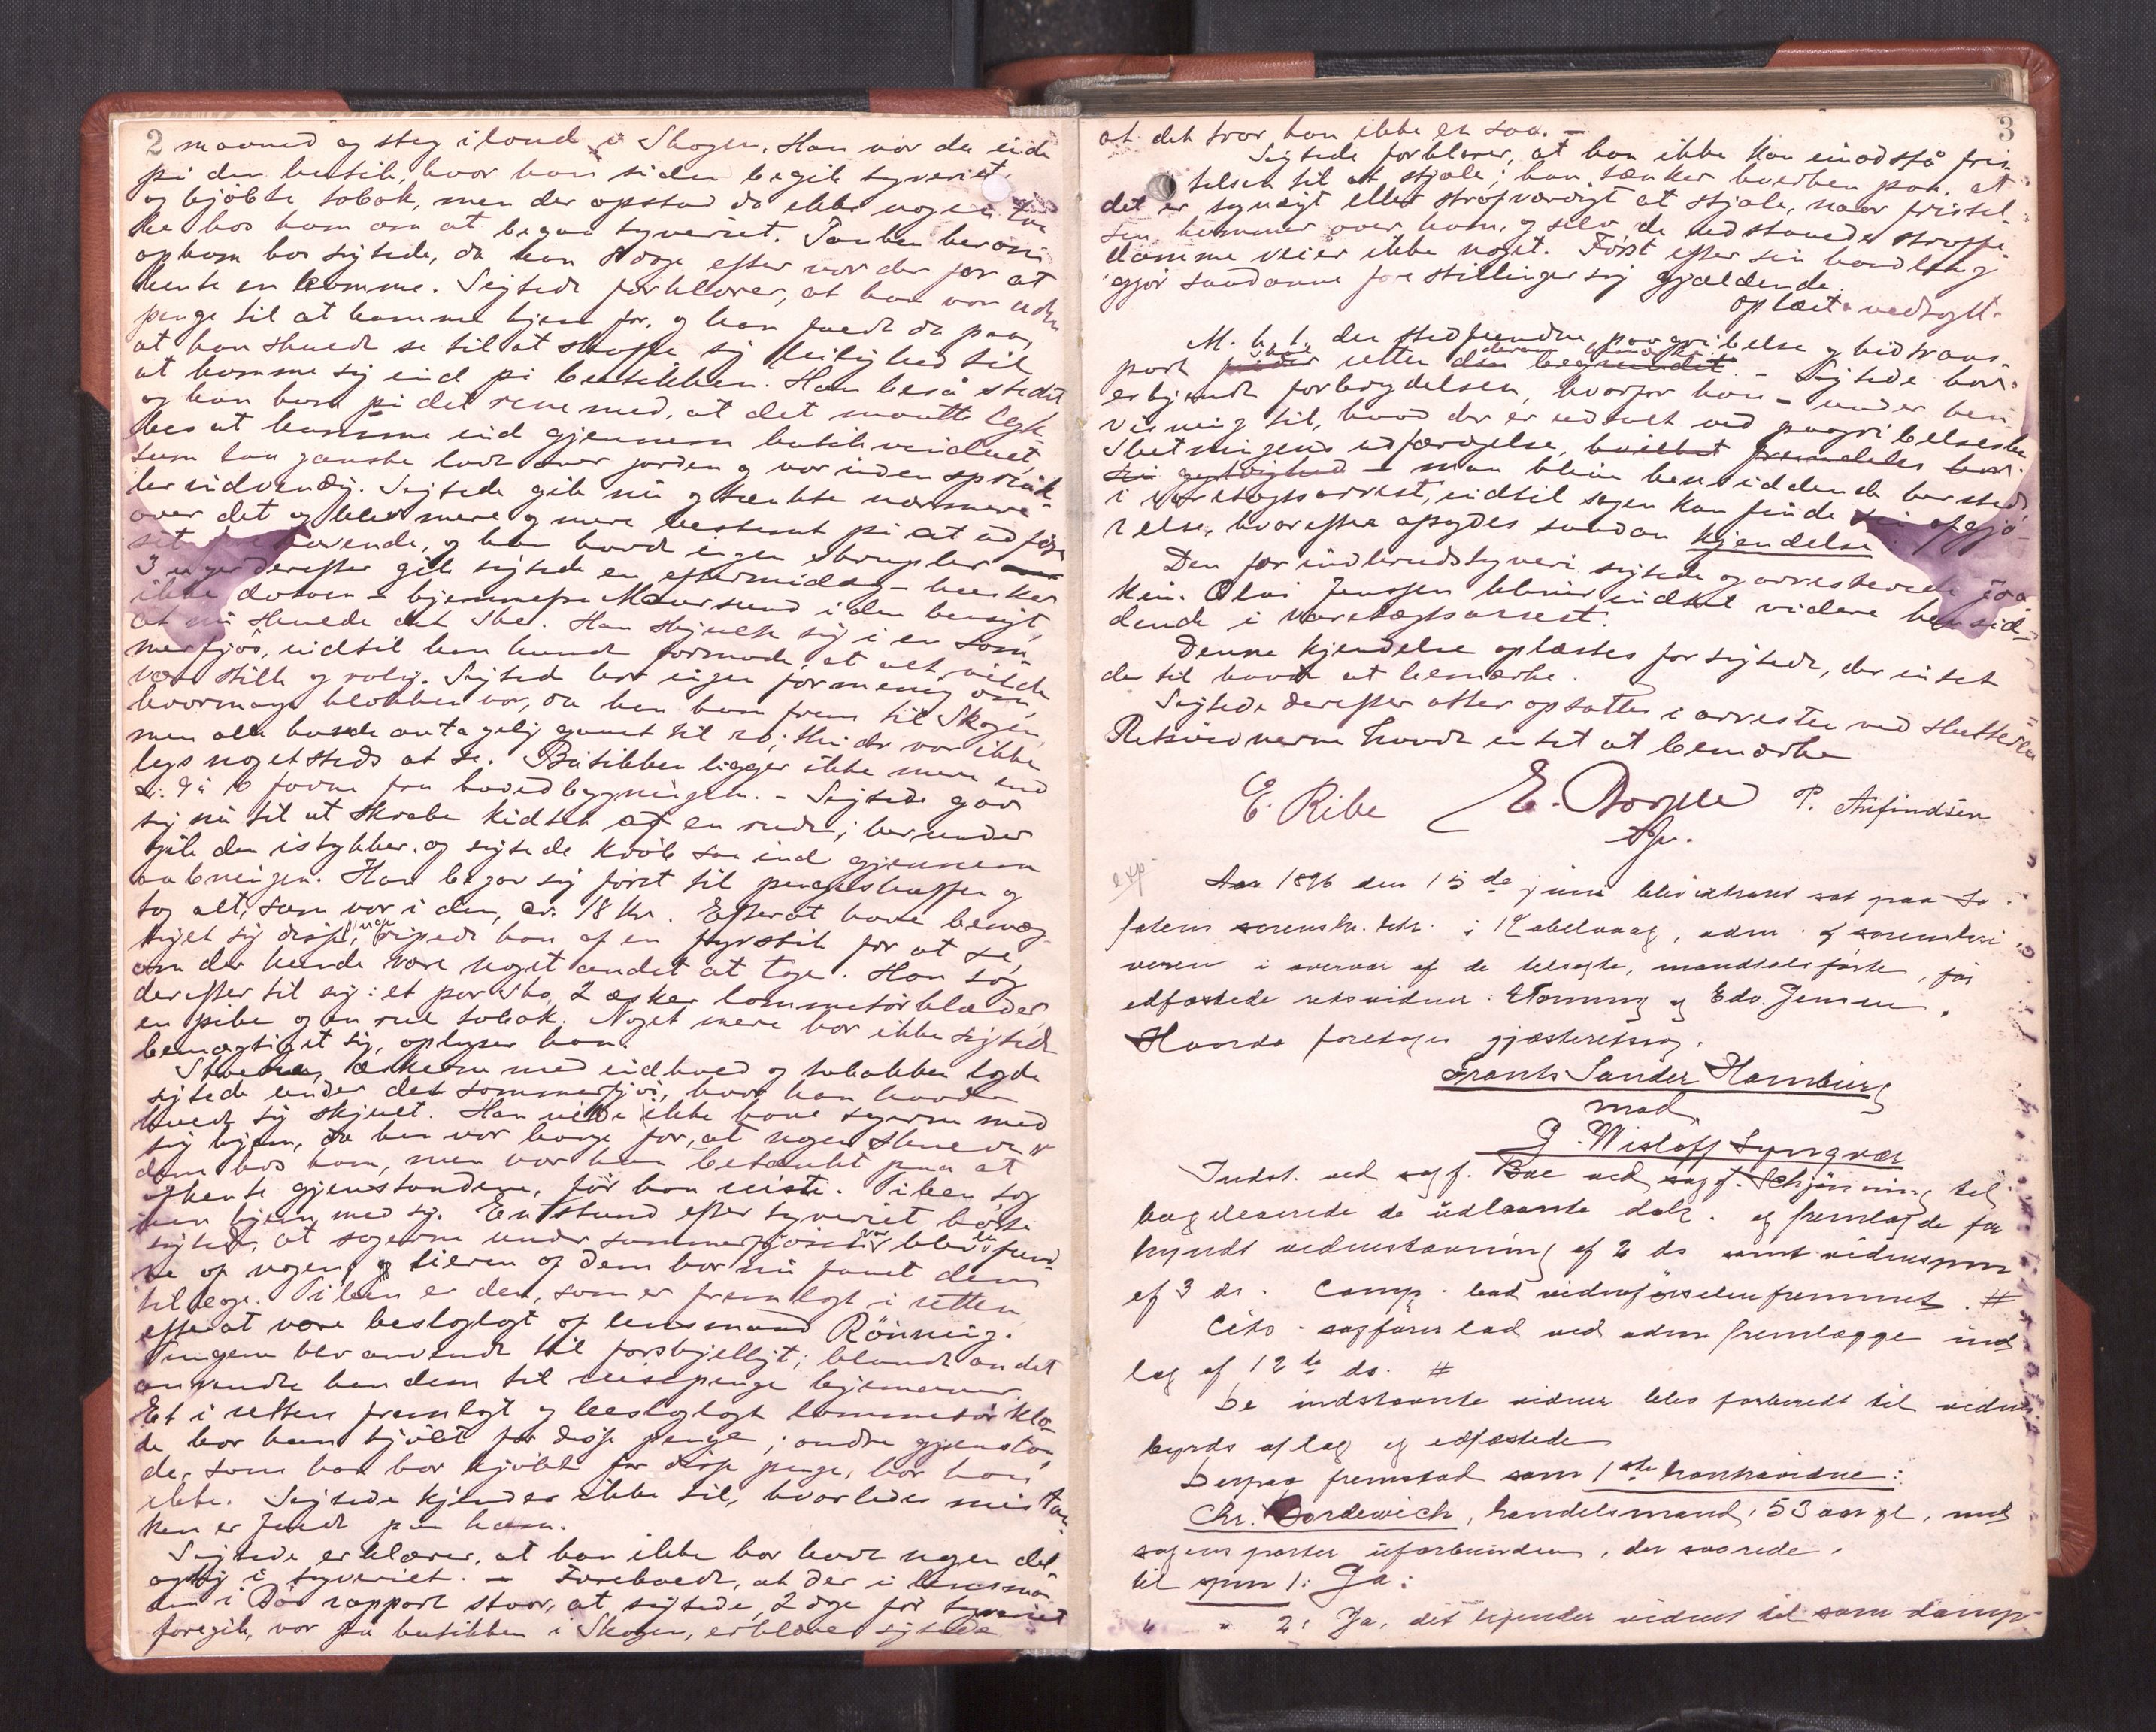 2 maaned og steg iland i Skogen. Han var da inde
på den butik, hvor han siden begik tyveriet,
og kjöbte tobak, men der opstod da ikke nogen tan
ke hos ham om at begaa tyveriet. Tanken herom
opkom hos sigtede, da han dage efter var der for at
hente en komme. Sigtede forklarer, at han var uden
penge til at komme hjem for, og han fandt da paa,
at han skulde se til at skaffe sig leilighed til
at komme sig ind på butikken. Han beså stedet
og han kom på det rene med, at det maatte lyk-
kes at komme ind gjennem butikvinduet,
som laa ganske lavt over jorden og var uden sprink
ler indvendig. Sigtede gik nu og tænkte nærmere
over det og blev mere og mere bestemt på at udføre
sit forehavende, og han havde ingen skrupler
3 uger derefter gik sigtede en eftermiddag – husker
ikke datoen – hjemmefra Maursund i den hensigt,
at nu skulde det ske. Han skjulte sig i en som
merfjös, indtil han kunde formode, at alt vilde
være stille og rolig. Sigtede har ingen formening om,
hvormange klokken var, da han kom frem til Skogen,
men alle havde antagelig gaaet til ro; thi der var ikke
lys nogetsteds at se. Butikken ligger ikke mere end
ca. 9 à 10 favne fra hovedbygningen. – Sigtede gav
sig nu til at skrabe kidtet af en rude; herunder
gik den istykker, og sigtede kröb saa ind gjennem
aabningen. Han begav sig först til pengeskuffen og
tog alt, som var i den, ca. 18 Kr. Efterat have bemæg
tiget sig disse penge, ripede han af en fyrstik for at se,
om der kunde være noget andet at tage. Han tog
derefter til sig: et par sko, 2 æsker lommetörklæder,
en pibe og en rul tobak. Noget mere har ikke sigtede
bemægtiget sig, oplyser han.
Skoene, æskerne med indhold og tobakken lagde
sigtede under det sommerfjös, hvor han havde
holdt sig skjult. Han vilde ikke have sagerne med
sig hjem, da han var bange for, at nogen skulde se
dem hos ham, men var han betænkt paa at
afhente gjenstandene, för han reiste. Piben tog
han hjem med sig. En stund efter tyveriet hörte
sigtede, at sagerne under sommerfjöset var blevet fun
ne af nogen, og eieren af dem har nu faaet dem
tilbage. Piben er den, som er fremlagt i retten
efterat være beslaglagt af lensmand Rönning.
Pengene blev anvendt til forskjelligt; blandt andet
anvendte han dem til reisepenge hjemover.
Et i retten fremlagt og beslaglagt lommetörklæ
de har han kjöbt for disse penge; andre gjenstan
de, som han har kjöbt for disse penge, har han
ikke. Sigtede kjender ikke til, hvorledes mistan-
ken er faldt paa ham.
Sigtede erklærer, at han ikke har havt nogen del
agtig i tyveriet. – Foreholdt, at der i lensman
den i Bös rapport staar, at sigtede, 2 dage för tyveriet
foregik, var på butikken i Skogen, erklærer sigtede
3
at det tror han ikke er saa. –
Sigtede forklarer, at han ikke kan imodstå fris
telsen til at stjæle; han tænker hverken paa, at
det er syndigt eller strafværdigt at stjæle, naar fristel-
sen kommer over ham, og selv de udstaaede straffe
domme veier ikke noget. Först efter sin handling
gjör saadanne forestillinger sig gjældende.
Oplæst – vedtaget.
M. h. t. den stedfundne paagribelse og hidtrans-
port finder retten den begrundet. – Sigtede har
erkjendt forbrydelsen, hvorfor han – under hen
visning til, hvad der er udtalt ved paagribelsesbe
slutningens udfærdigelse, hvilket fremdeles har
sin gyldighed – maa blive hensiddende her sted
i varetægtsarrest, indtil sagen kan finde sin afgjö-
relse, hvorefter afsagdes saadan kjendelse
Den for indbrudstyveri sigtede og arresterede Joa
kim Olai Jenssen bliver indtil videre hensid-
dende i varetægtsarrest.
Denne kjendelse oplæstes for sigtede, der intet
der til havde at bemærke.
Sigtede derefter atter opsattes i arresten ved slutteren
Retsvidnerne havde intet at bemærke
E. Ribe E. Dorple P. Arfindsen
Aar 1896 den 15de juni blev extraret sat paa Lo
fotens sorenskr. ktr. i Kabelvaag, adm. af sorenskri
veren i overvær af de tilsagte, mandtalsförte, för
edfæstede retsvidner: E Torning og Edv. Jensen.
Hvorda foretages gjæsteretssag.
Frants Sander Hamburg
mod
J. Wislöff Lyngvær
Indst. ved sagf. Boe ved sagf. Schjönning til
bageleverede de udlaante dok. og fremlagde for
kyndt vidnestævning af 2 ds samt vidnespm
af 3 ds. Comp. bad vidneförselen fremmet. #
Cits sagförer lod ved adm fremlægge ind
læg af 12te ds. #
De indstævnte vidner blev forberedt til vidnes
byrds aflæg og edfæstede
Derpaa fremstod som 1ste hovedvidne:
Chr. Bordewich, handelsmand, 53 aar gl, med
sagens parter uforbunden, der svarede,
til spm 1: Ja:
" " 2: Ja, det kjender vidnet til som damp-